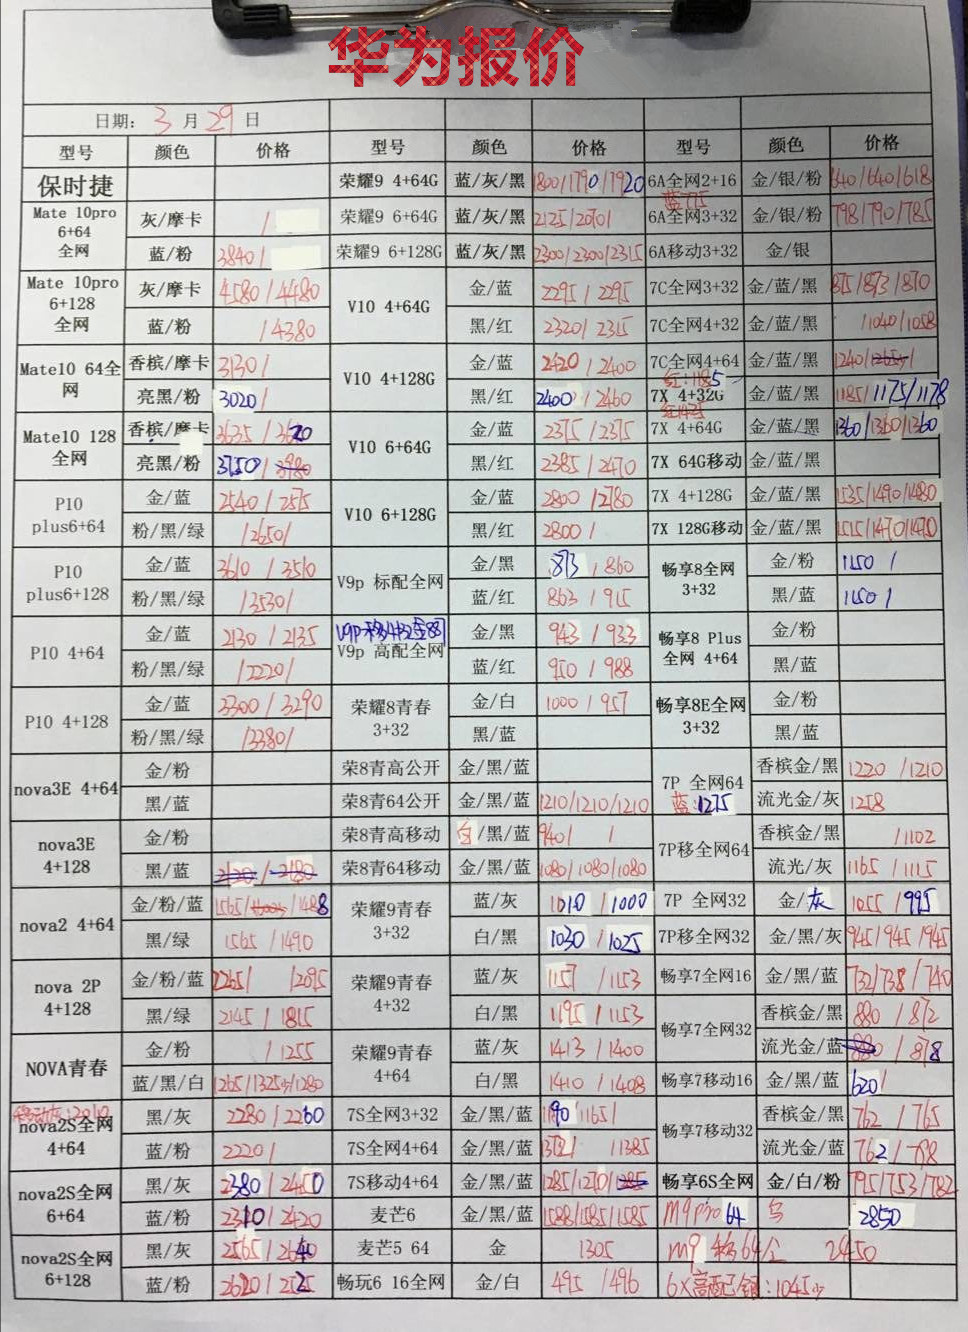 华为报价
日期: 3 月 29 日
型号 颜色 价格 型号 颜色 价格 型号 颜色 价格
保时捷 荣耀9 4+64G 蓝/灰/黑 1800/1790/1920 6A全网2+16 金/银/粉 640/640/618
蓝775
Mate 10pro 6+64 全网 灰/摩卡 / 荣耀9 6+64G 蓝/灰/黑 2125/2070/ 6A全网3+32 金/银/粉 798/790/785
蓝/粉 3840/ 荣耀9 6+128G 蓝/灰/黑 2300/2300/2315 6A移动3+32 金/银
Mate 10pro 6+128 全网 灰/摩卡 4580/4480 V10 4+64G 金/蓝 2295/2295 7C全网3+32 金/蓝/黑 875/873/870
蓝/粉 /4380 黑/红 2320/2315 7C全网4+32 金/蓝/黑 /1040/1058
Mate10 64全网 香槟/摩卡 3130/ V10 4+128G 金/蓝 2420/2400 7C全网4+64 金/蓝/黑 1240/
红:1185
亮黑/粉 3020/ 黑/红 2400/2460 7X 4+32G 金/蓝/黑 1185/1175/1178
红1475
Mate10 128全网 香槟/摩卡 3635/3620 V10 6+64G 金/蓝 2375/2375 7X 4+64G 金/蓝/黑 1360/1360/1360
亮黑/粉 3750/3980 黑/红 2385/2470 7X 64G移动 金/蓝/黑
P10 plus6+64 金/蓝 2540/2575 V10 6+128G 金/蓝 2800/2780 7X 4+128G 金/蓝/黑 1535/1490/1480
粉/黑/绿 /2650/ 黑/红 2800/ 7X 128G移动 金/蓝/黑 1515/1470/1470
P10 plus6+128 金/蓝 3610/3510 V9p 标配全网 金/黑 873/860 畅享8全网 3+32 金/粉 1150/
粉/黑/绿 /3530/ 蓝/红 863/915 黑/蓝 1150/
P10 4+64 金/蓝 2130/2135 V9p 高配全网 金/黑 943/933 畅享8 Plus 全网 4+64 金/粉
粉/黑/绿 /2220/ 蓝/红 950/988 黑/蓝
P10 4+128 金/蓝 3300/3290 荣耀8青春 3+32 金/白 1000/957 畅享8E全网 3+32 金/粉
粉/黑/绿 /3380/ 黑/蓝 黑/蓝
nova3E 4+64 金/粉 荣8青高公开 金/黑/蓝 7P 全网64 香槟金/黑 1220/1210
黑/蓝 荣8青64公开 金/黑/蓝 1210/1210/1210 蓝:1275 流光金/灰 1258
nova3E 4+128 金/粉 荣8青高移动 白/黑/蓝 940/ / 7P移全网64 香槟金/黑 /1102
黑/蓝 2120/2180 荣8青64移动 金/黑/蓝 1080/1080/1080 流光/灰 1165/1115
nova2 4+64 金/粉/蓝 1565/ /1488 荣耀9青春 3+32 蓝/灰 1010/1000 7P 全网32 金/灰 1055/995
黑/绿 1565/1490 白/黑 1030/1025 7P移全网32 金/黑/灰 945/945/945
nova 2P 4+128 金/粉/蓝 2265/ /2095 荣耀9青春 4+32 蓝/灰 1157/1153 畅享7全网16 金/黑/蓝 732/738/740
黑/绿 2145/1815 白/黑 1195/1153 畅享7全网32 香槟金/黑 880/872
NOVA青春 金/粉 /1255 荣耀9青春 4+64 蓝/灰 1413/1400 流光金/蓝 880/878
蓝/黑/白 1265/1325少/1280 白/黑 1410/1408 畅享7移动16 金/黑/蓝 620/
nova2S全网 4+64 黑/灰 2280/2260 7S全网3+32 金/黑/蓝 1190/1165/ 畅享7移动32 香槟金/黑 762/765
蓝/粉 2220/ 7S全网4+64 金/黑/蓝 1372/ /1385 流光金/蓝 762/798
nova2S全网 6+64 黑/灰 2380/2450 7S移动4+64 金/黑/蓝 1285/1270/1285 畅享6S全网 金/白/粉 795/753/782
蓝/粉 2310/2420 麦芒6 金/黑/蓝 1588/1585/1585 M9pro 64 乌 2850
nova2S全网 6+128 黑/灰 2565/2640 麦芒5 64 金 1305 m9 移64金 2450
蓝/粉 2620/2525 畅玩6 16全网 金/白 495/496 6X高配已销:1045少